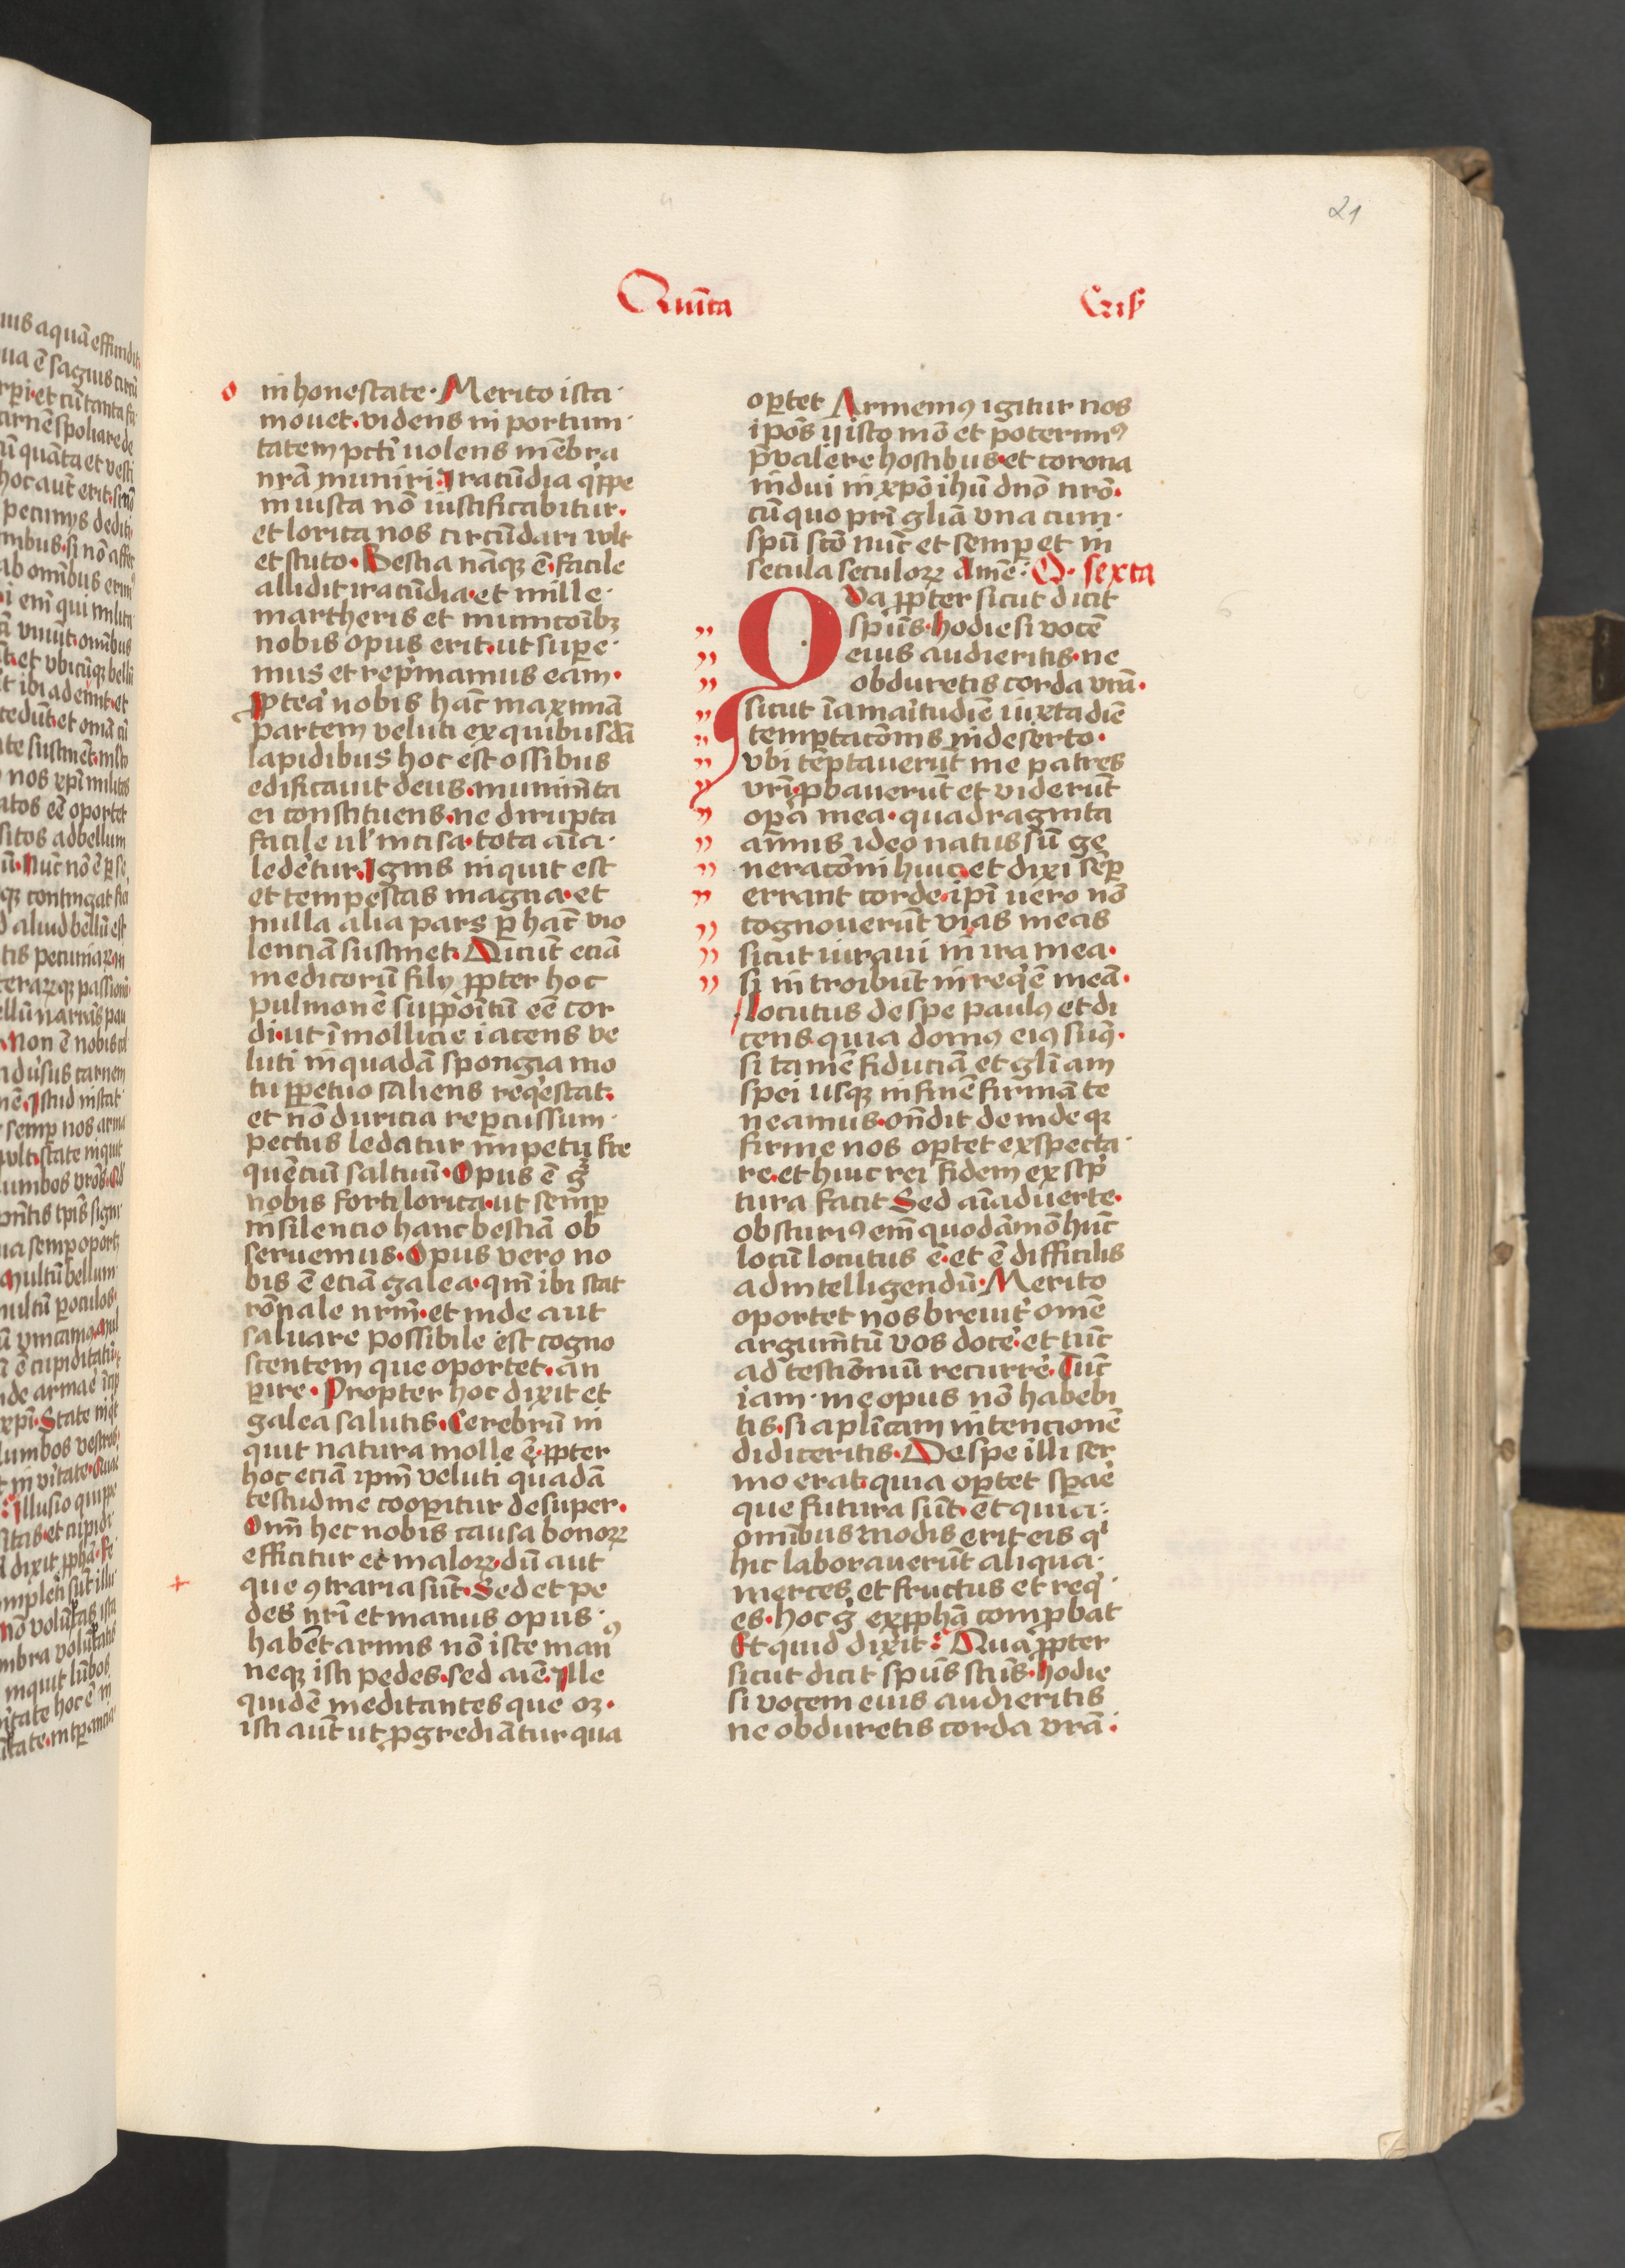 21
Quīta
Cris
inhonestate · Merito ista ·
mouet · videns in portum ·
tatem pcti uolens mēbra
nrā muniri · Iracūdia qͥppe
iniusta nō iustificabitur ·
et lorica nos circūdari vult
et scuto · Bestia nāqꝫ ē · facile
allidit iracūdia · et mille ·
martheris et municōibꝫ
nobis opus erit · ut supe ·
mus et rep̄mamus eam ·
p̄tea nobis hāc maximā
partem veluti ex quibusdā
lapidibus hoc est ossibus
edificauit deus · munimīta
ei constituens · ne dirupta
facile ul' incisa · tota aīa ·
ledētur · Ignis inquit est
et tempestas magna · et
nulla alia pars p̱ hāc vio
lenciā sustinet · Dicūt eciā
medicorū filij ꝓpter hoc
pulmonē supp̄oitū eē cor
di · ut ī mollicie iacens ve
luti in quadā spongia mo
tu ꝑpetuo saliens reqͥescat ·
et nō duricia reꝑcussum ·
pectus ledatur impetu fre
quēciū saltuū · Opus ē gͦ
nobis forti lorica · ut semꝑ
in silencio hanc bestiā ob
seruemus · Opus vero no
bis ē eciā galea · qm̄ ibi stat
rōnale nrm̄ · et inde aut
saluare possibile est cogno
scentem que oportet · an
ꝑire · Propter hoc dixit et
galea salutis · Cerebrū in
quit natura molle ē · ꝓpter
hoc eciā ipm̄ veluti quadā
testudine cooꝑitur desuper ·
Om̄ hec nobis causa bonoꝝ
efficitur et maloꝝ · dū aut
que ꝯtraria sūt · Sed et pe
des nrī et manus opus ·
habēt armis nō iste manꝰ
neqꝫ isti pedes · sed aīe · Ille
quidē meditantes que oꝫ ·
isti aūt ut ꝓgrediātur qua
oꝑtet Armemꝰ igitur nos
ip̄os ij isto mō et poterimꝰ
p̄valere hostibus · et corona
indui in xp̄o ihū dn̄o nrō ·
cū quo prī gliā vna cum ·
spū scō nūc et semꝑ et in
secula seculoꝝ Amē · O · sexta
Va ꝓpter sicut dicit
spūs · hodie si vocē
eius audieritis · ne
obduretis corda vrā ·
sicut ī amaritudiē iuxta diē
temptacōnis in deserto ·
vbi tēptauerūt me patres
vrī · ꝓbauerūt et viderūt
opa mea · quadraginta
annis ideo natus sū ge
neracōni huic · et dixi sēꝑ
errant corde · ipī uero nō
cognouerūt vias meas
sicut iuraui in ira mea ·
si introibūt in reqͥē meā ·
Locutus de spe paulꝰ et di
cens · quia domꝰ eiꝰ sumꝰ ·
si tamē fiduciā et gliam
spei usqꝫ in finē firmā te
neamus · ondit deinde qꝫ
firme nos oꝑtet exspecta ·
re · et huic rei fidem ex scͥp
tura facit Sed aīaduerte ·
obscuriꝰ em̄ quodāmō hūc
locū locutus ē · et ē difficilis
ad intelligendū · Merito
oportet nos breuit' omē
argumītū vos docē' · et tūc
ad testimoniū recurrē' · Tūc
iam · me opus nō habebi
tis · si aplicam intencionē
didiceritis · De spe illi ser
mo erat · quia oꝑtet spare
que futura sūt · et quia ·
omībus modis erit eis qͥ
hic laborauerūt aliqua ·
merces et fructus et reqͥ ·
es · hoc gͦ ex ꝓphā comꝓbat
Et quid dixit : Qua ꝓpter
sicut dicit spūs scūs · hodie
si vocem eius audieritis
ne obduretis corda vrā ·